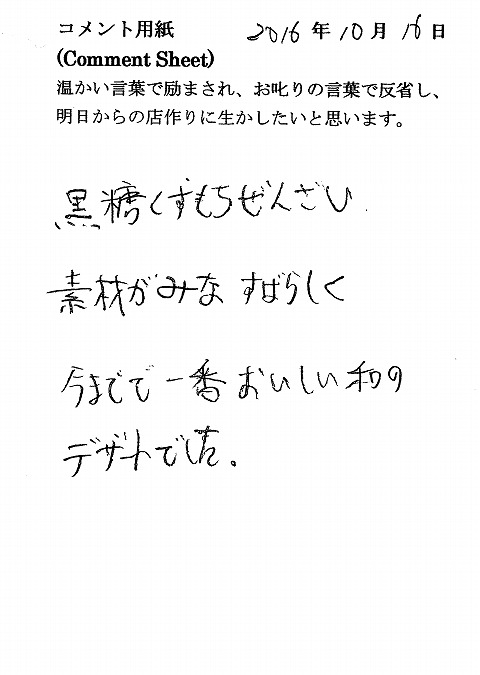 コメント用紙 2016年10月16日
(Comment Sheet)
温かい言葉で励まされ、お叱りの言葉で反省し、
明日からの店作りに生かしたいと思います。
黒糖くずもちぜんざい
素材がみなすばらしく
今までで一番おいしい和の
デザートでした。